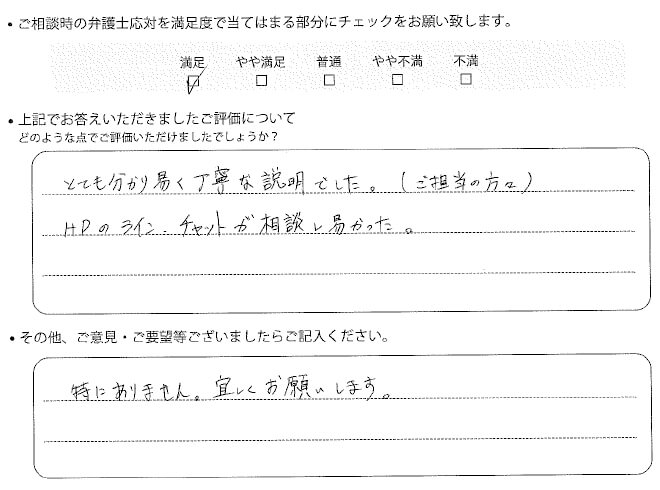 ・ご相談時の弁護士応対を満足度で当てはまる部分にチェックをお願い致します。
満足 やや満足 普通 やや不満 不満
☑ □ □ □ □
・上記でお答えいただきましたご評価について
どのような点でご評価いただけましたでしょうか？
とても分かり易く丁寧な説明でした。(ご担当の方々)
HPのライン.チャットが相談し易かった。
・その他、ご意見・ご要望等ございましたらご記入ください。
特にありません。宜しくお願いします。